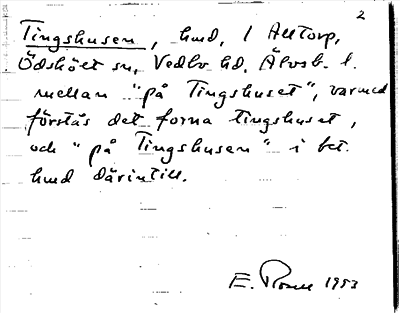 2
Tingshusen, hmd, / Alltorp,
Ödskölt sn, Vedbo hd, Älvsb. l.
mellan "på Tingshuset", varmed
förstås det forna tingshuset,
och "på Tingshusen" i bet.
hmd därintill.
E. 1953